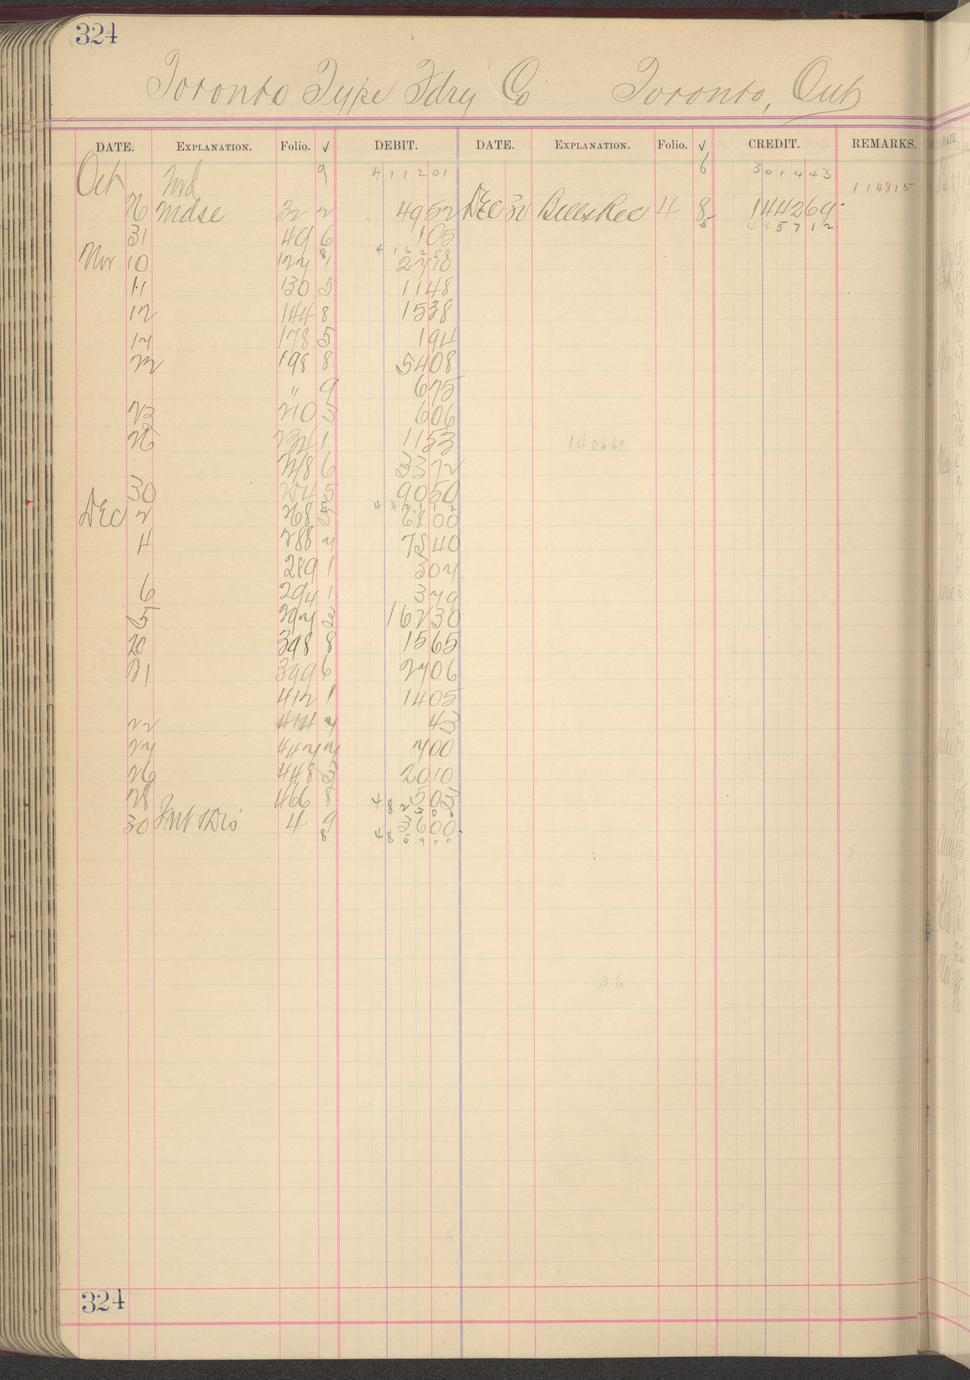 324
Toronto Type Fdry Co Toronto, Ont
DATE. EXPLANATION. Folio. √ DEBIT. DATE. EXPLANATION. Folio. √ CREDIT. REMARKS.
Oct 9 411201 6 301443
114815
26 Mdse 32 2 4952 DEC 30 Bills Rec 4 8 144269
5 445712
31 49 6 105
Nov 10 127 1 2778
11 130 5 1148
12 144 8 1538
14 178 5 194
22 198 8 5408
" 9 675
23 210 3 606
26 232 1 1153 140669
248 6 3372
30 254 5 9050
DEC 2 268 6800
4 288 2 7840
289 1 307
6 294 1 379
5 297 2 16730
20 398 8 1565
21 399 6 2706
412 1 1405
22 43
27 447 7 700
26 448 3 2010
28 466 8 503
30 4 9 3600
8 486900
36
324